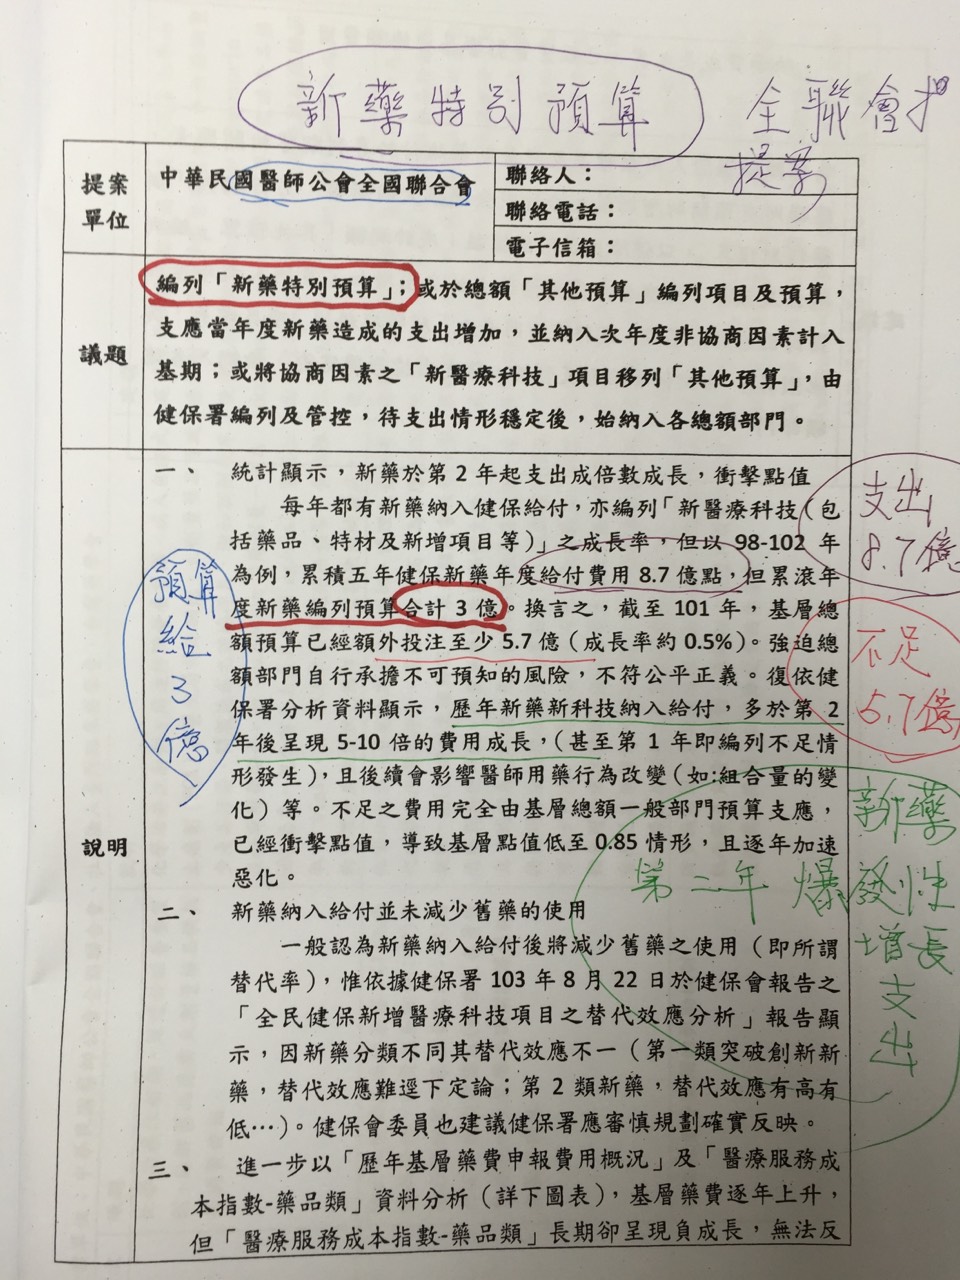 新藥特別預算
全聯會提
提案
提案單位
中華民國醫師公會全國聯合會
聯絡人：
聯絡電話：
電子信箱：
議題
編列「新藥特別預算」；或於總額「其他預算」編列項目及預算，
支應當年度新藥造成的支出增加，並納入次年度非協商因素計入
基期；或將協商因素之「新醫療科技」項目移列「其他預算」，由
健保署編列及管控，待支出情形穩定後，始納入各總額部門。
說明
一、 統計顯示，新藥於第 2 年起支出成倍數成長，衝擊點值
每年都有新藥納入健保給付，亦編列「新醫療科技（包
括藥品、特材及新增項目等）」之成長率，但以 98-102 年
為例，累積五年健保新藥年度給付費用 8.7 億點，但累滾年
度新藥編列預算合計 3 億。換言之，截至 101 年，基層總
額預算已經額外投注至少 5.7 億（成長率約 0.5%）。強迫總
額部門自行承擔不可預知的風險，不符公平正義。復依健
保署分析資料顯示，歷年新藥新科技納入給付，多於第 2
年後呈現 5-10 倍的費用成長，（甚至第 1 年即編列不足情
形發生），且後續會影響醫師用藥行為改變（如:組合量的變
化）等。不足之費用完全由基層總額一般部門預算支應，
已經衝擊點值，導致基層點值低至 0.85 情形，且逐年加速
惡化。
二、 新藥納入給付並未減少舊藥的使用
一般認為新藥納入給付後將減少舊藥之使用（即所謂
替代率），惟依據健保署 103 年 8 月 22 日於健保會報告之
「全民健保新增醫療科技項目之替代效應分析」報告顯
示，因新藥分類不同其替代效應不一（第一類突破創新新
藥，替代效應難逕下定論；第 2 類新藥，替代效應有高有
低…）。健保會委員也建議健保署應審慎規劃確實反映。
三、 進一步以「歷年基層藥費申報費用概況」及「醫療服務成
本指數-藥品類」資料分析（詳下圖表），基層藥費逐年上升，
但「醫療服務成本指數-藥品類」長期卻呈現負成長，無法反
預算
給
3
億
支出
8.7億
不足
5.7億
新藥
第二年爆發性
增長
支
出